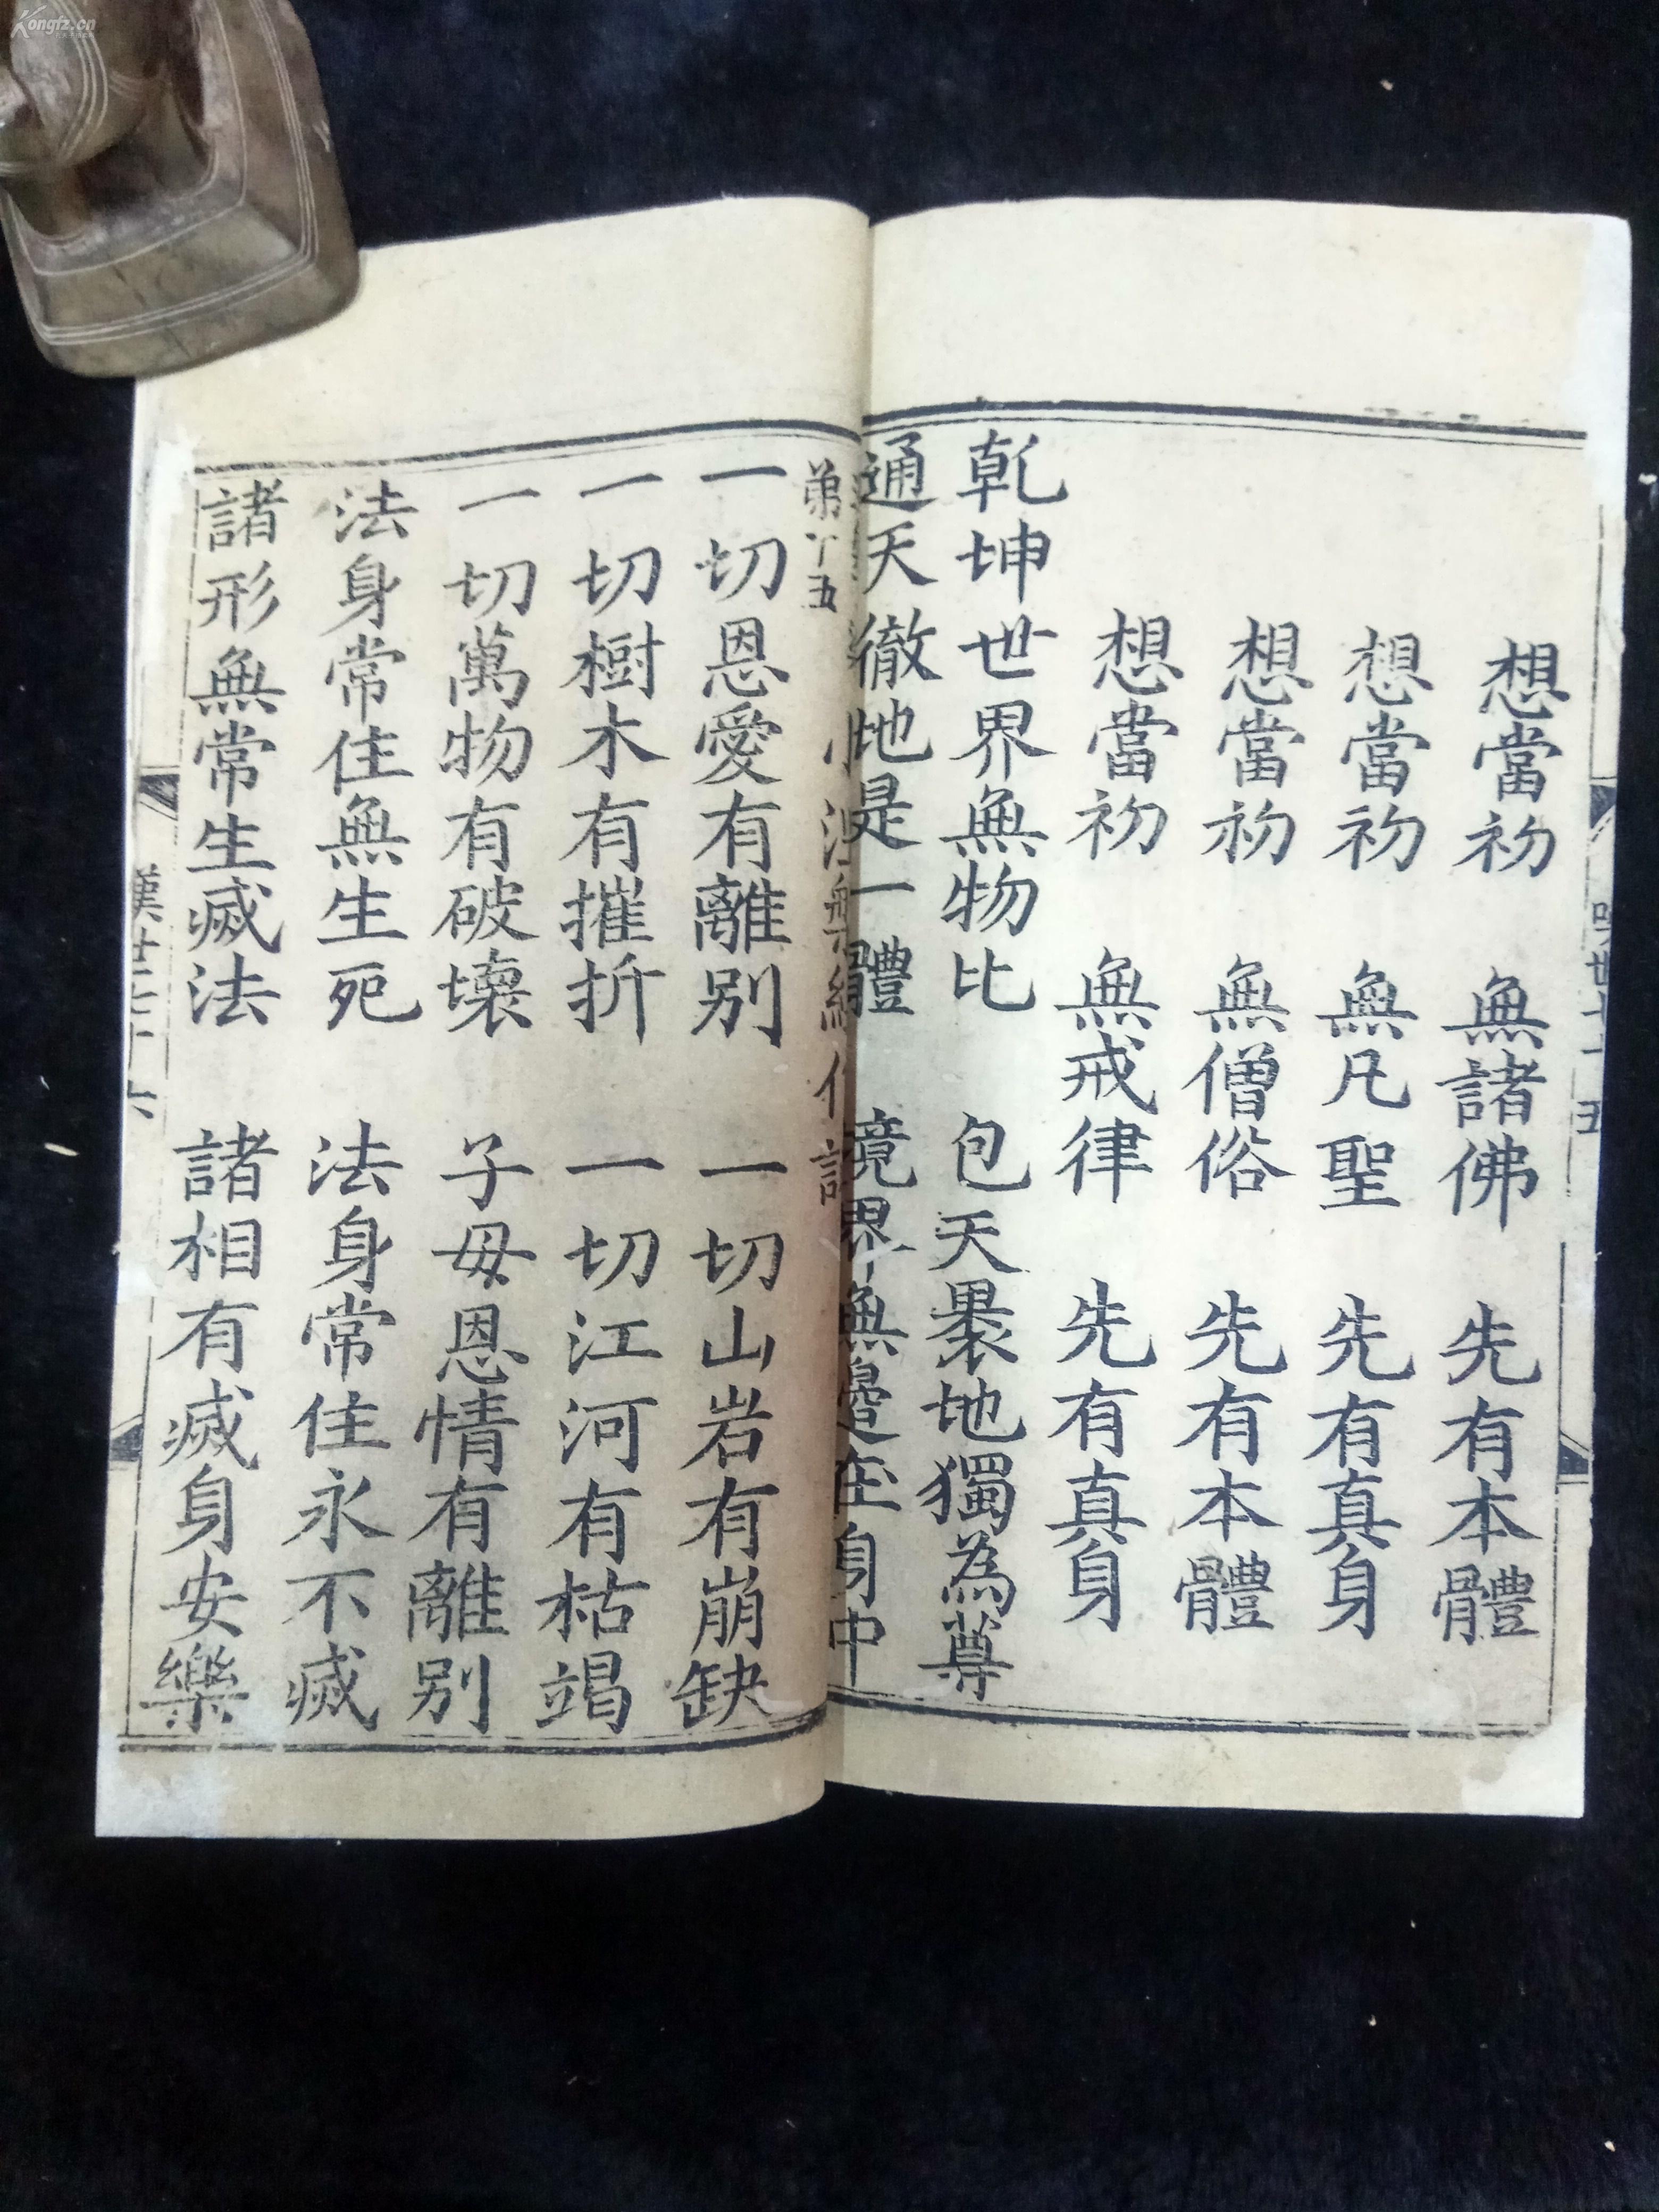 Kongfz.cn
想當初　無諸佛　先有本體
想當初　無凡聖　先有真身
想當初　無僧俗　先有本體
想當初　無戒律　先有真身
乾坤世界無物比　包天褁地獨為尊
通天徹地是一體　境界無邊在身中
弟十五
一切恩愛有離別　一切山岩有崩缺
一切樹木有摧折　一切江河有枯竭
一切萬物有破壞　子母恩情有離別
法身常住無生死　法身常住永不滅
諸形無常生滅法　諸相有滅身安樂